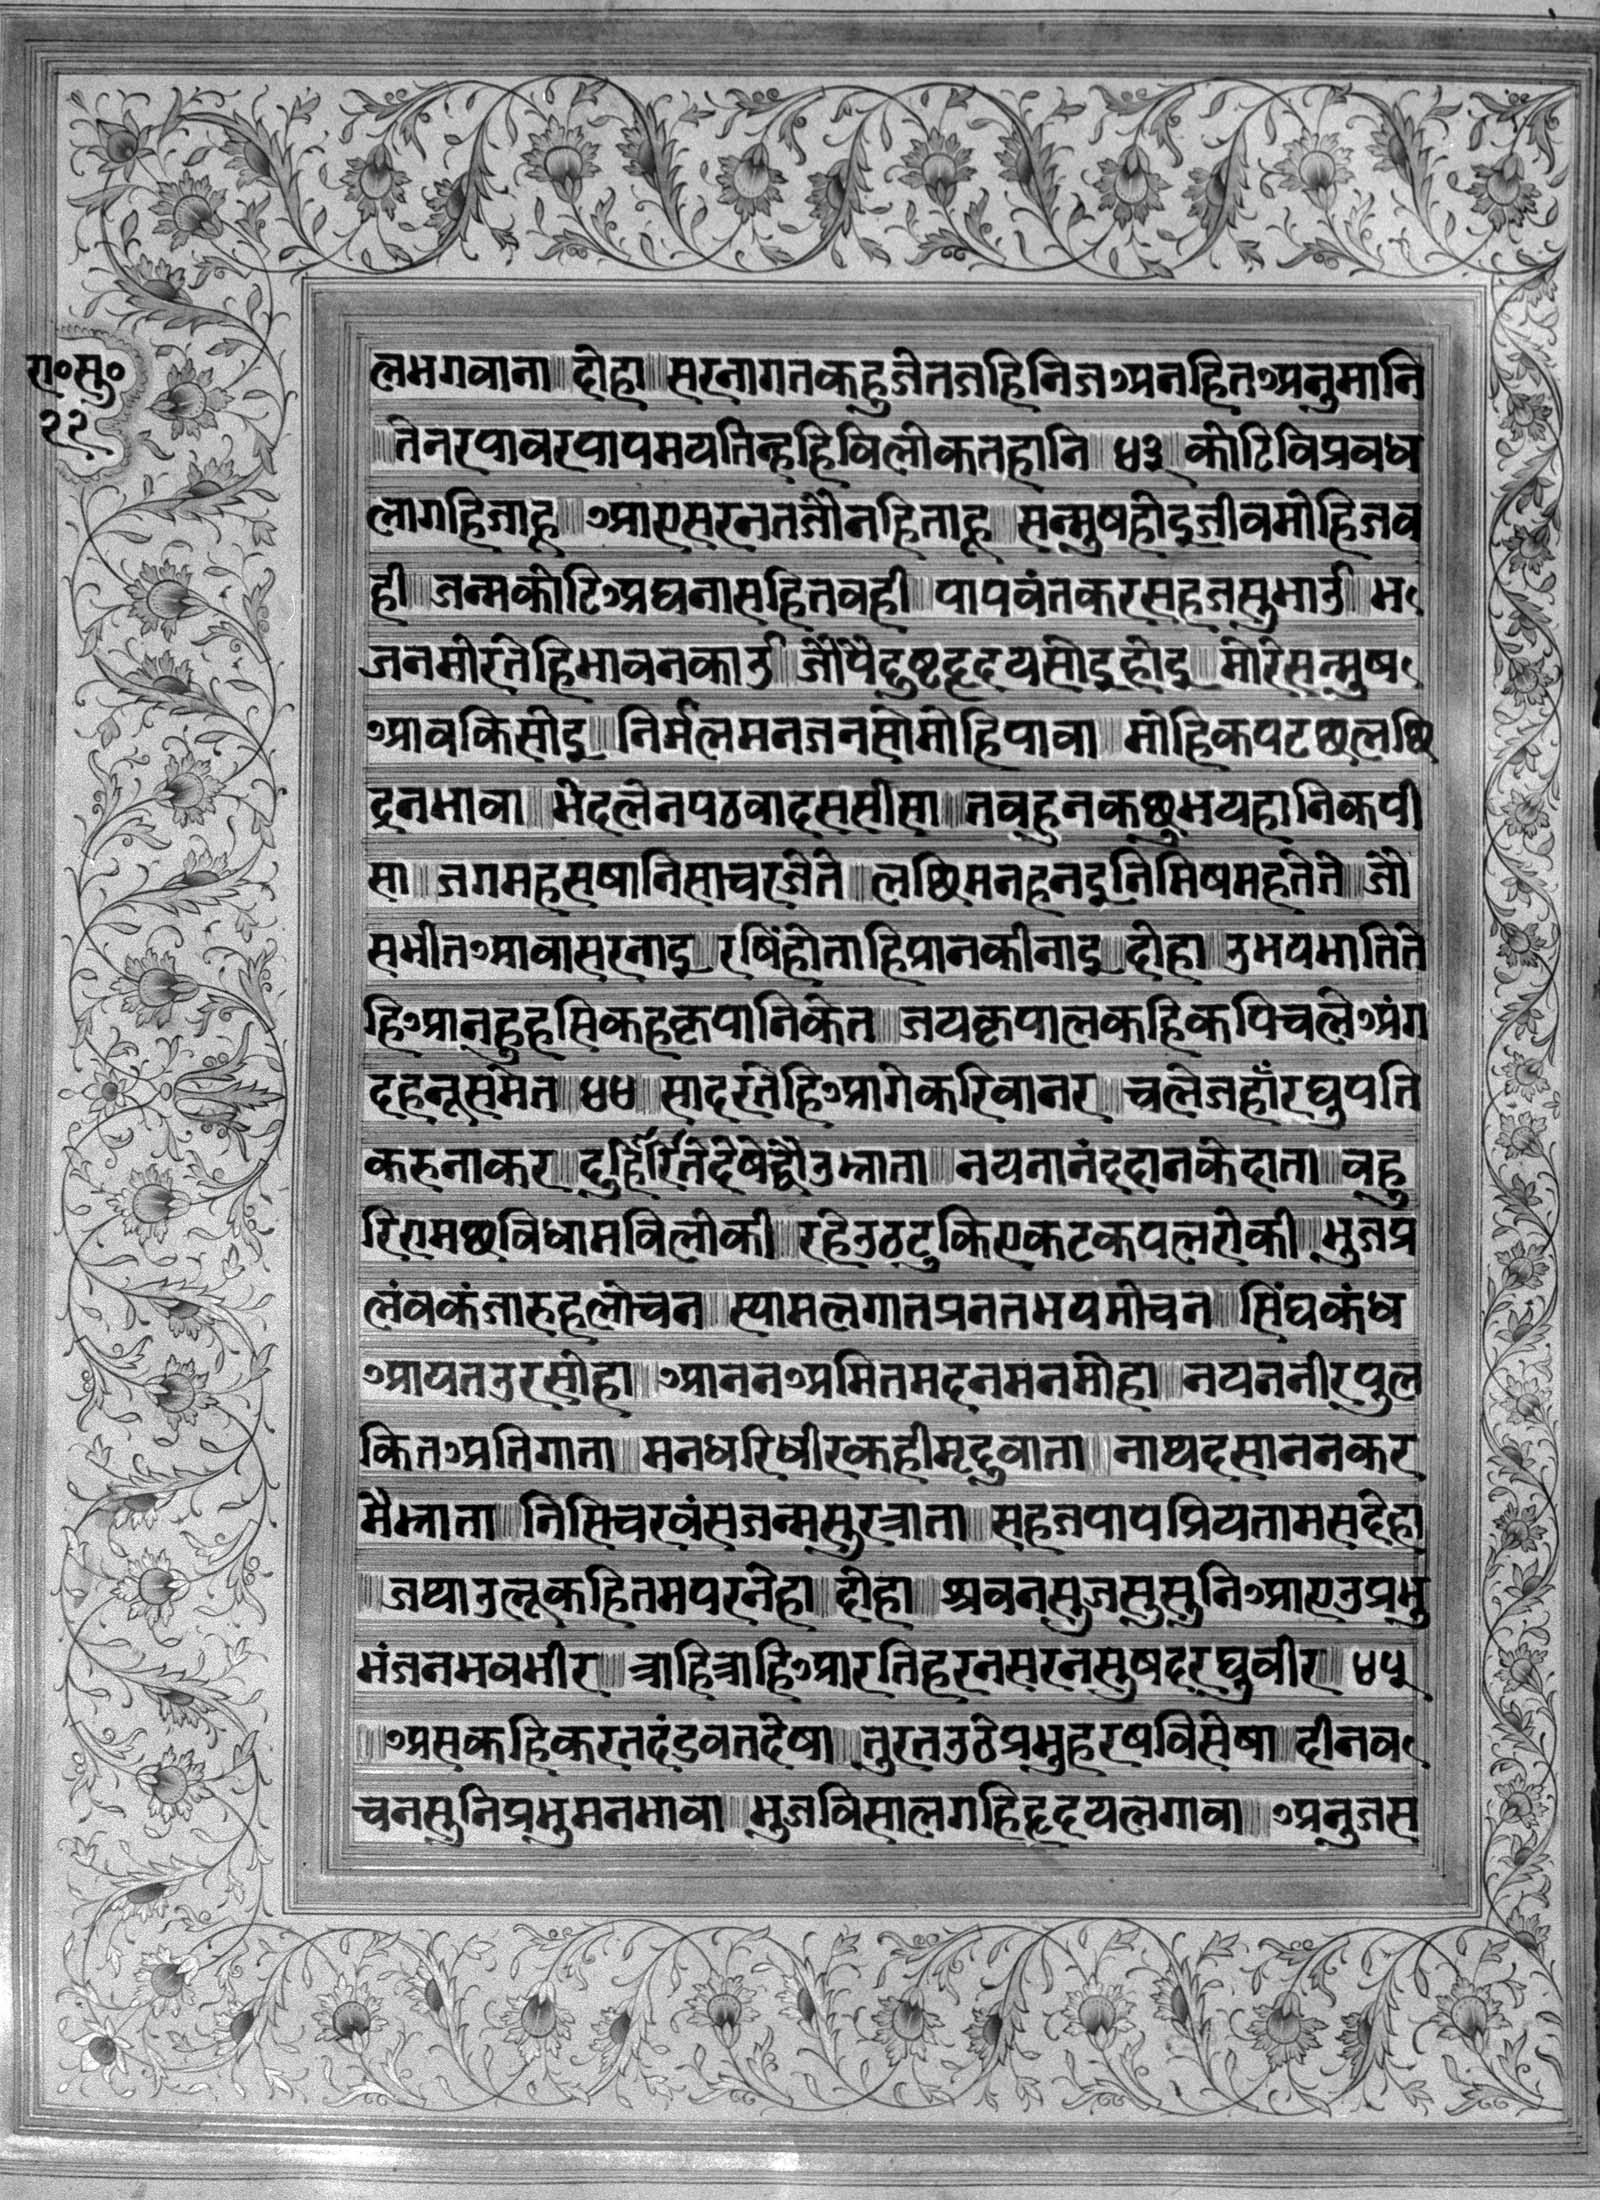 रा॰सु॰
२२
लभगवाना दोहा सरनागतकहुजेतजहिनिजअनहितअनुमानि
तेनरपावरपापमयतिन्हहिविलोकतहानि ४३ कोटिविप्रवध
लागहिजाहू आएसरनतजौनहिताहू सन्मुषहोइजीवमोहिजव
ही जन्मकोटिअघनासहितवही पापवंतकरसहजसुभाउ भ
जनमोरतेहिभावनकाउ जौपैदुष्टहृदयसोइहोइ मोरेसन्मुष
आवकिसोइ निर्मलमनजनसोमोहिपावा मोहिकपटछलछि
द्रनभावा भेदलेनपठवादससीसा तवहुनकछुभयहानिकपी
सा जगमहसषानिसाचरजेते लछिमनहनइनिमिषमहतेते जौ
सभीतआवासरनाइ रषिंहौताहिप्रानकीनाइ दोहा उभयभातिते
हिआनहुहसिकहकृपानिकेत जयकृपालकहिकपिचलेअंग
दहनूसमेत ४४ सादरतेहिआगेकरिवानर चलेजहाँरघुपति
करुनाकर दुरिहितेदेषेद्वौउभ्राता नयनानंददानकेदाता वहु
रिरामछविधामविलोकी रहेउठटुकिएकटकपलरोकी भुजप्र
लंवकंजारुहलोचन स्यामलगातप्रनतभयमोचन सिंघकंध
आयतउरसोहा आननअमितमदनमनमोहा नयननीरपुल
कितअतिगाता मनधरिधीरकहीमृदुवाता नाथदसाननकर
मैभ्राता निसिचरवंसजन्मसुरत्राता सहजपापप्रियतामसदेहा
जथाउलूकहितमपरनेहा दोहा श्रवनसुजसुसुनिआएउप्रभु
भंजनभवभीर त्राहित्राहिआरतिहरनसरनसुषदरघुवीर ४५
असकहिकरतदंडवतदेषा तुरतउठेप्रभुहरषविसेषा दीनव
चनसुनिप्रभुमनभावा भुजविसालगहिहृदयलगावा अनुजस